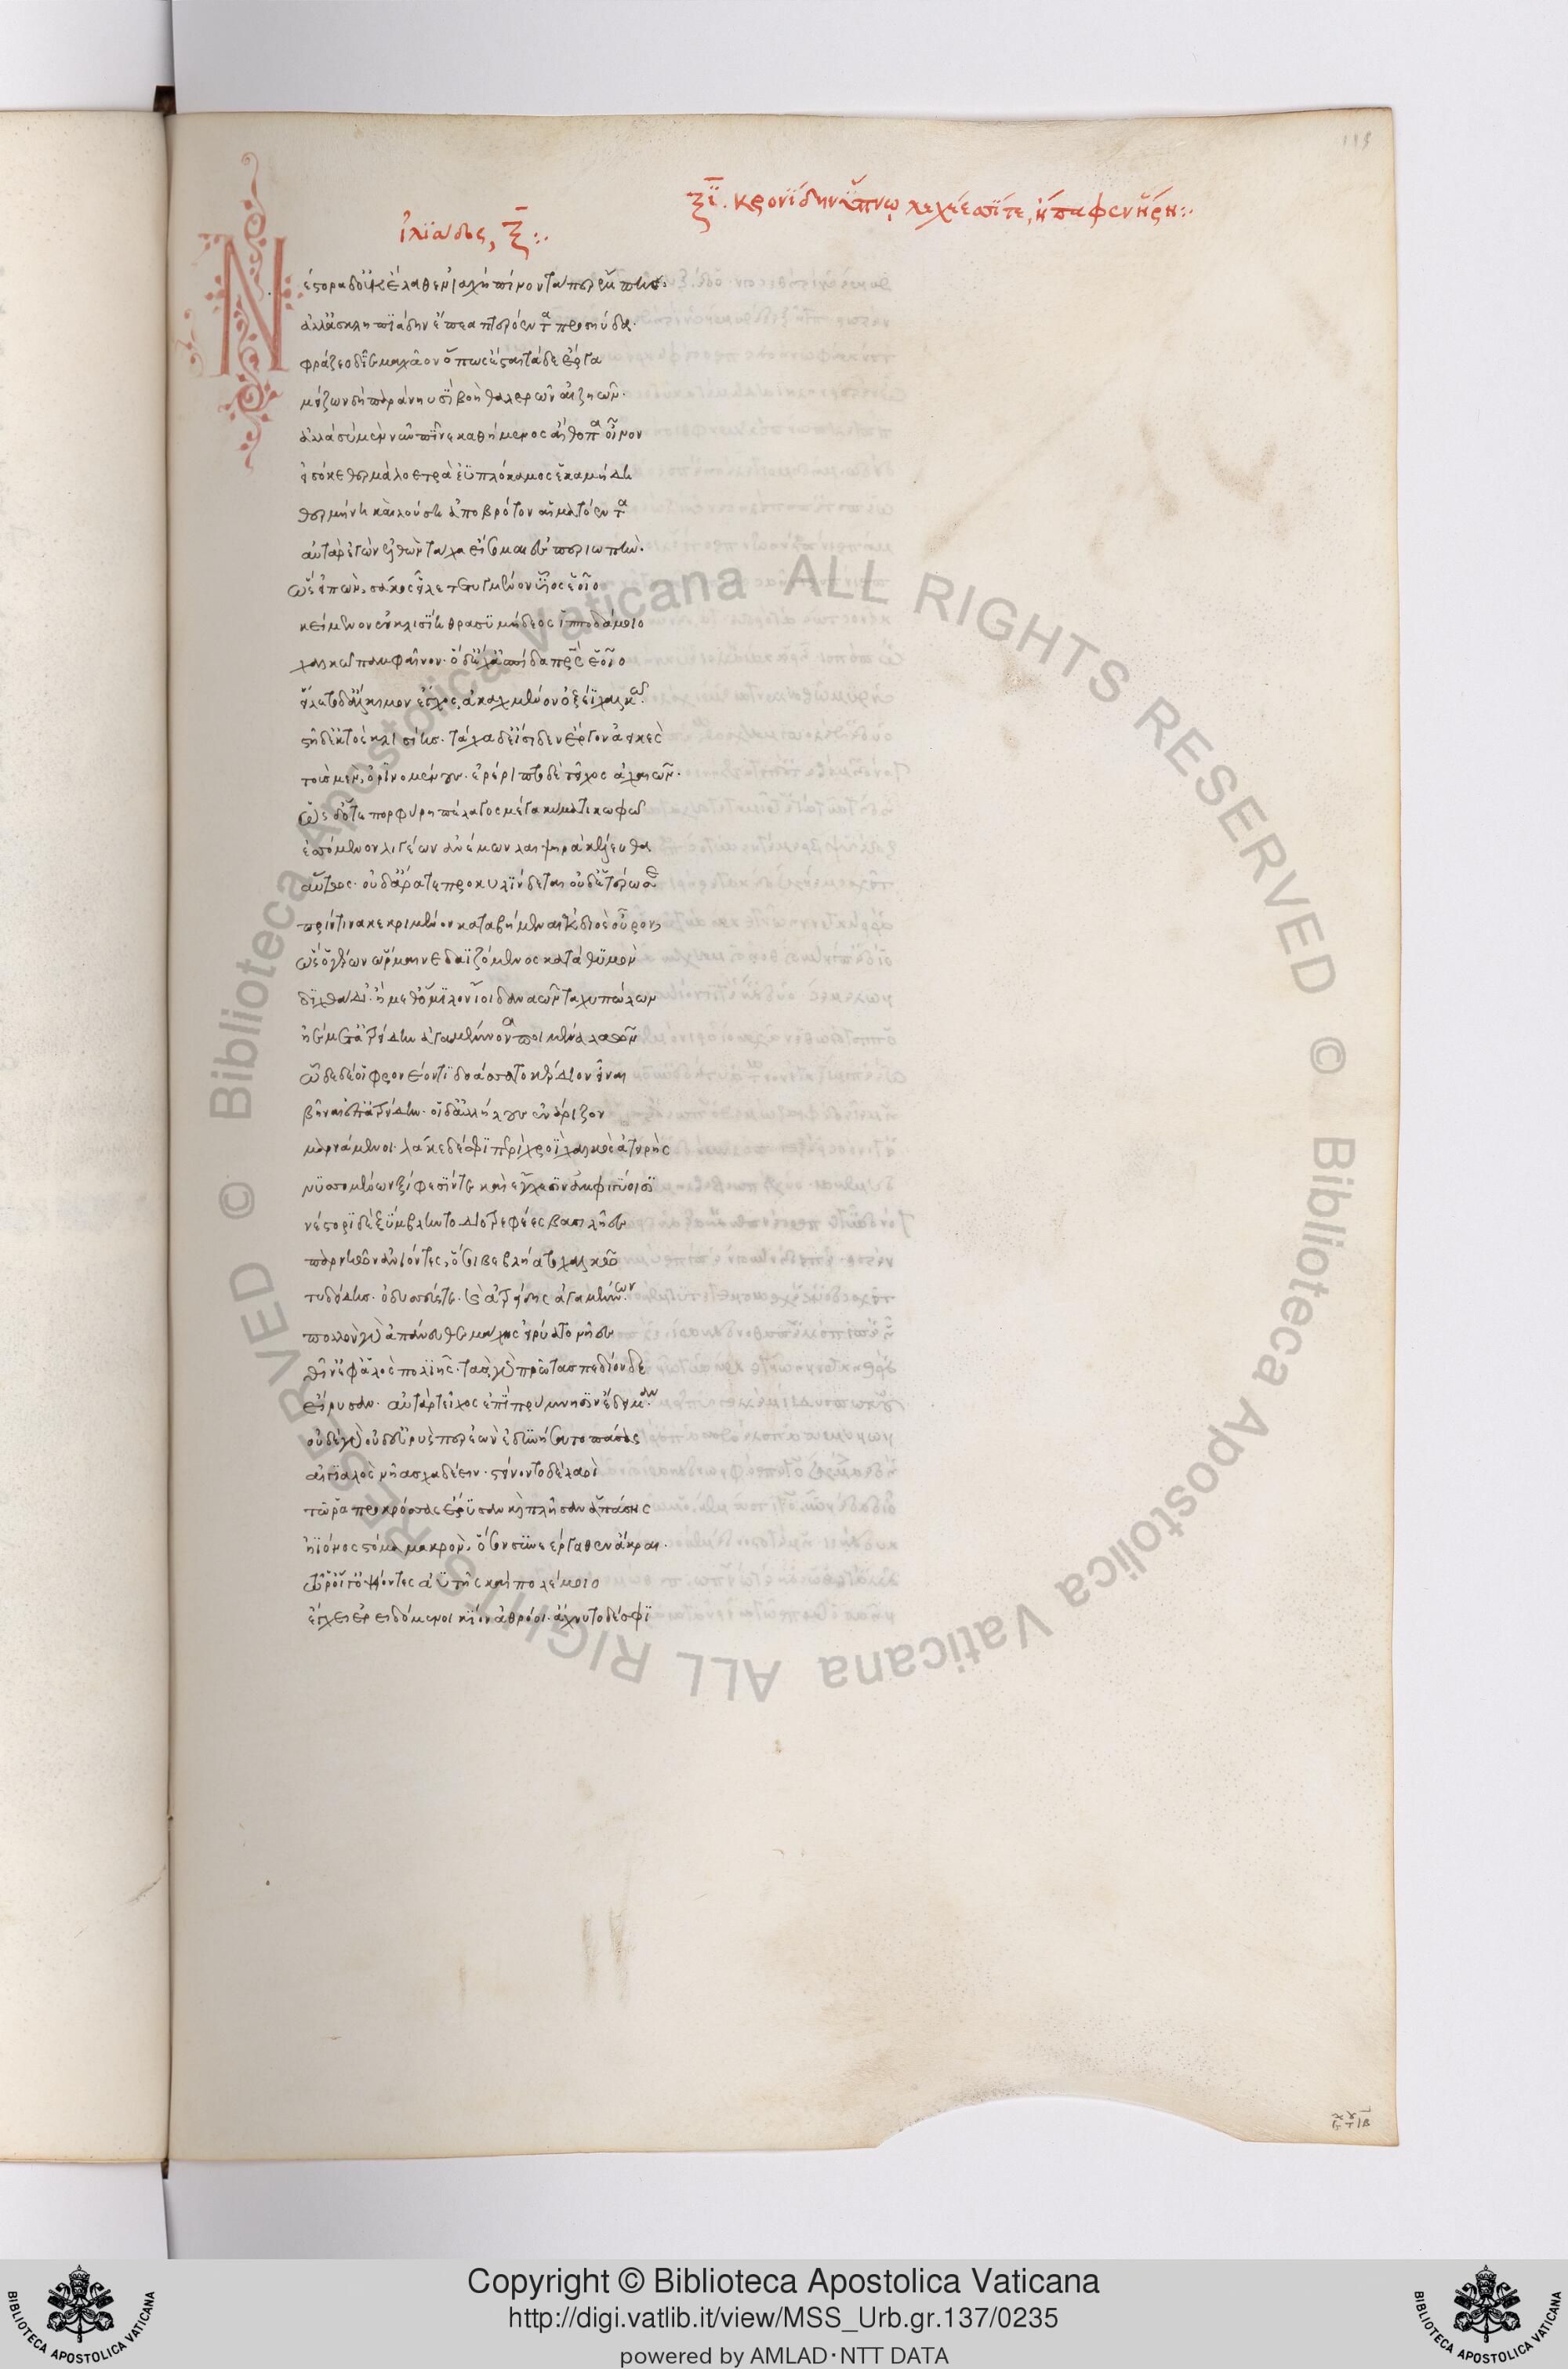 115
ξῖ. κρονίδην ὕπνῳ λεχέεσσί τε, κ̀ ἤπαφεν ἥρη:·
ἰλιάδος, ξ̄:·
Νέστορα δ' οὐκ ἔλαθεν ἰαχὴ πίνοντά περ ἔμπης.
ἀλλ' ἀσκληπιάδην ἔπεα πτερόεντα προσηύδα.
φράζεο δῖε μαχᾶον ὅπως ἔσται τάδε ἔργα
μείζων δὴ παρὰ νηυσὶ βοὴ θαλερῶν αἰζηῶν.
ἀλλὰ σὺ μὲν νῦν πῖνε καθήμενος αἴθοπα οἶνον
εἰσόκε θερμὰ λοετρὰ ἐϋπλόκαμος ἑκαμήδη
θερμήνη καὶ λούση ἀπο βρότον αἱματόεντα
αὐτὰρ ἐγὼν ἐλθὼν τάχα εἴσομαι ἐς περιωπήν.
ὣς εἰπὼν, σάκος εἷλε τετυγμένον υἷος ἑοῖο
κείμενον ἐν κλισίη θρασυμήδεος ἱπποδάμοιο
χαλκῶ παμφαῖνον. ὁ δ' ἔχ' ἀσπίδα πατρὸς ἑοῖο
εἵλετο δ' ἄλκιμον ἔγχος, ἀκαχμένον ὀξέϊ χαλκῶ.
στῆ δ' ἐκτὸς κλισίης. τάχα δ' εἴσιδεν ἔργον ἀεικὲς
τοὺς μὲν, ὀρινομένους. ἐρέριπτο δὲ τεῖχος ἀχαιῶν.
ὡς δ' ὅτε πορφύρη πέλαγος μέγα κύματι κωφῶ
ὀσσόμενον λιγέων ἀνέμων λαιψηρὰ κέλευθα
αὔτως. οὐδ' ἄρα τε προκυλίνδεται οὐδετέρωσε
πρίν τινα κεκριμένον καταβήμεναι ἐκ διὸς οὖρον,
ὣς ὁ γέρων ὥρμαινε δαϊζόμενος κατὰ θυμὸν
διχθάδι'. ἢ μεθ' ὅμιλον ἴοι δαναῶν ταχυπώλων
ἠὲ μετ' ἀτρείδην ἀγαμέμνονα ποιμένα λαῶν
ὧδε δέ οἱ φρονέοντι δοάσσατο κέρδιον εἶναι
βῆναι ἐπ' ἀτρείδην. οἱ δ' ἀλλήλους ἐνάριζον
μαρνάμενοι. λάκε δέ σφι περὶ χροῒ χαλκὸς ἀτειρὴς
νυσσομένων ξίφεσίν τε καὶ ἔγχεσιν ἀμφιγύοισι
νέστορι δὲ ξύμβληντο διοτρεφέες βασιλῆες
πὰρ νηῶν ἀνιόντες, ὅσοι βεβλήατο χαλκῶ
τυδείδης. ὀδυσσεύς τε. καὶ ἀτρείδης ἀγαμέμνων.
πολλὸν γὰρ ἀπάνευθε μάχης εἰρύατο νῆες
θῖν' ἔφ' ἁλὸς πολιῆς. τὰς γὰρ πρώτας πεδίονδε
εἴρυσαν. αὐτὰρ τεῖχος ἐπὶ πρύμνησιν ἔδειμαν.
οὐδὲ γὰρ οὐδ' εὐρύς περ ἐὼν ἐδυνήσατο πάσας
αἰγιαλὸς νῆας χαδέειν. στείνοντο δὲ λαοὶ
τῶ ῥα προκρόσσας ἔρυσαν κ̀ πλῆσαν ἁπάσης
ἠϊόνος στόμα μακρὸν, ὅσον συνεέργαθεν ἄκραι.
τῶ ῥ' οἵ γ' ὀψείοντες ἀϋτῆς καὶ πολέμοιο
ἔγχει ἐρειδόμενοι κίον ἀθρόοι. ἄχνυτο δέ σφι
© Biblioteca Apostolica Vaticana ALL RIGHTS RESERVED © Biblioteca Apostolica Vaticana ALL RIGHTS RESERVED
Copyright © Biblioteca Apostolica Vaticana
http://digi.vatlib.it/view/MSS_Urb.gr.137/0235
powered by AMLAD·NTT DATA
BIBLIOTECA APOSTOLICA VATICANA
BIBLIOTECA APOSTOLICA VATICANA